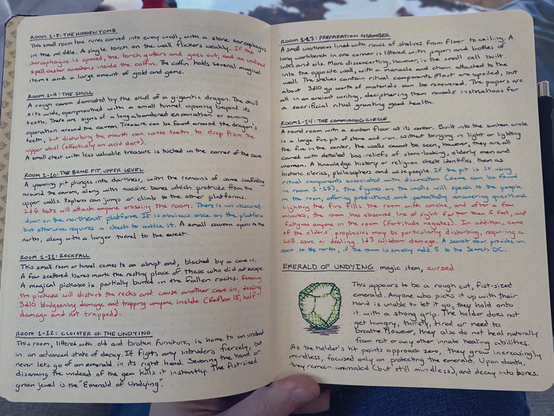 ROOM 1-8: THE HIDDEN TOMB
This small room has runes carved into every wall, with a stone sarcophagus
in the middle. A single torch on the wall flickers weakly. If the
sarcophagus is opened, the torch gutters and goes out, and an undead
spellcaster awakens inside the coffin. The coffin holds several magical
items and a large amount of gold and gems.
ROOM 1-9: THE SKULL
A rough cavern dominated by the skull of a gigantic dragon. The skull
sits wide, openmouthed with a small tunnel opening beyond its
teeth. There are signs of a long abandoned excavation or mining
operation around the cavern. Treasure can be found around the dragon's
teeth, but disturbing the mouth can cause teeth to drop from the
upper skull (effectively an acid dart).
A small chest with less valuable treasure is hidden in the corner of the cave.
ROOM 1-10: THE BONE PIT, UPPER LEVEL
A yawning pit plunges into darkness, with the remains of some scaffolding
around the cavern, along with massive bones which protrude from the
upper walls. Explorers can jump or climb to the other platforms.
1d6 bats will attack anyone crossing the room. There is an obscured
door on the northeast platform. It is obvious once on the platform
but otherwise requires a check to notice it. A small cavern opens to the
north, along with a larger tunnel to the west.
ROOM 1-11: ROCKFALL
This small room or tunnel comes to an abrupt end, blocked by a cave in.
A few scattered bones mark the resting place of those who did not escape.
A magical pickaxe is partially buried in the fallen rocks. Removing
the pickaxe will disturb the rocks and cause another cave in, dealing
3d10 bludgeoning damage and trapping anyone inside (Reflex 15, half
damage and not trapped).
ROOM 1-12: CLOISTER OF THE UNDYING
This room, littered with old and broken furniture, is home to an undead
in an advanced state of decay. It fights any intruders fiercely, but
never lets go of an emerald in its right hand. Severing the hand or
disarming the undead of the gem kills it instantly. The fist-sized
green jewel is the "Emerald of Undying".
ROOM 1-13: PREPARATION CHAMBER
A small workroom lined with rows of shelves from floor to ceiling. A
long workbench in one corner is littered with papers and bottles of
wax and oil. More disconcerting, however, is the small cell built
into the opposite wall, with a manacle and chain attached to the
wall. The shelves contain ritual components. Most are spoiled, but
about 300 gold worth of materials can be recovered. The papers are
all in an ancient writing, deciphering them reveals instructions for
a sacrificial ritual granting good health.
ROOM 1-14: THE COMMUNING CIRCLE
A round room with a sunken floor at its center. Built into the sunken circle
is a large fire pit of stone and iron. Without bringing in light or lighting
the fire in the center, the walls cannot be seen, however, they are all
carved with detailed bas reliefs of stern-looking, elderly men and
women. A knowledge history or religion check identifies them as
historic clerics, philosophers and wise people. If the pit is lit using
ritual components associated with divination (some can be found
in room 1-13), the figures on the walls will speak to the people
in the room, offering predictions and potentially answering questions.
Lighting the fire fills the room with smoke, and after a few
minutes, the room has obscured line of sight farther than 5 feet, and
fatigues anyone in the room (Fort negates). In addition, some
of the elders' prophecies may be particularly disturbing, requiring a
will save or dealing 1d3 wisdom damage. A secret door provides an
exit to the north, if the room is smokey add 5 to the Search DC.
EMERALD OF UNDYING magic item, cursed
This appears to be a rough cut, fist-sized
emerald. Anyone who picks it up with their
hand is unable to let it go, they hold onto
it with a strong grip. The holder does not
get hungry, thirsty, tired or need to
breathe. However, they also do not heal naturally
from rest or any other innate healing abilities.
As the holder's hit points approach zero, they grow increasingly
mindless, focused only on protecting the emerald. Upon death,
they remain animated (but still mindless), and decay into bones.